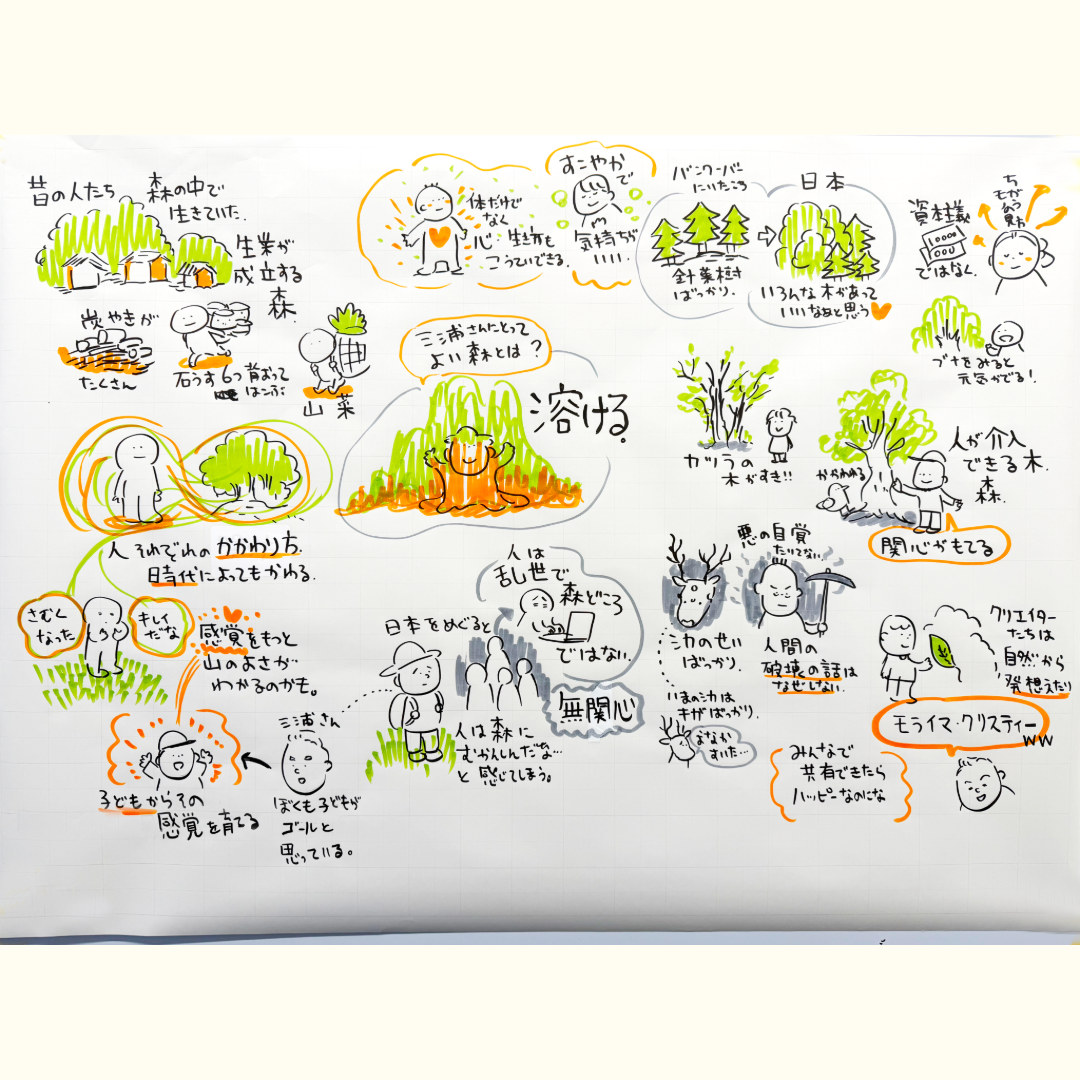 昔の人たち
森の中で
生きていた。
生業が
成立する
森
炭やきが
たくさん
石うす6つ背おって
はこぶ
山菜
体だけで
なく
心・生き方も
こうていできる。
すこやかで
気持ちが
いい。
バンクーバー
にいたころ
針葉樹
ばっかり.
日本
いろんな木があって
いいなぁと思う
資本主義
10000
000
ではなく.
ちがう
モノ
ブナをみると
元気がでる!
三浦さんにとって
よい森とは?
溶ける.
カツラの
木がすき!!
かかわれる
人が介入
できる木.
森.
関心がもてる
人それぞれのかかわり方.
時代によってもかわる.
さむく
なった
キレイ
だな
感覚をもっと
山のよさが
わかるのかも。
子どもからその
感覚を育てる
三浦さん
ぼくも子どもが
ゴールと
思っている。
日本をめぐると
人は
乱世で
森どころ
ではない.
人は森に
むかんしんだな…
と感じてしまう。
無関心
シカのせい
ばっかり.
いまのシカは
キガばっかり.
おなか
すいた…
悪の自覚
たりてない.
人間の
破壊の話は
なぜしない
みんなで
共有できたら
ハッピーなのにな
クリエイター
たちは
自然から
発想えたり
モライマ・クリスティー
ww